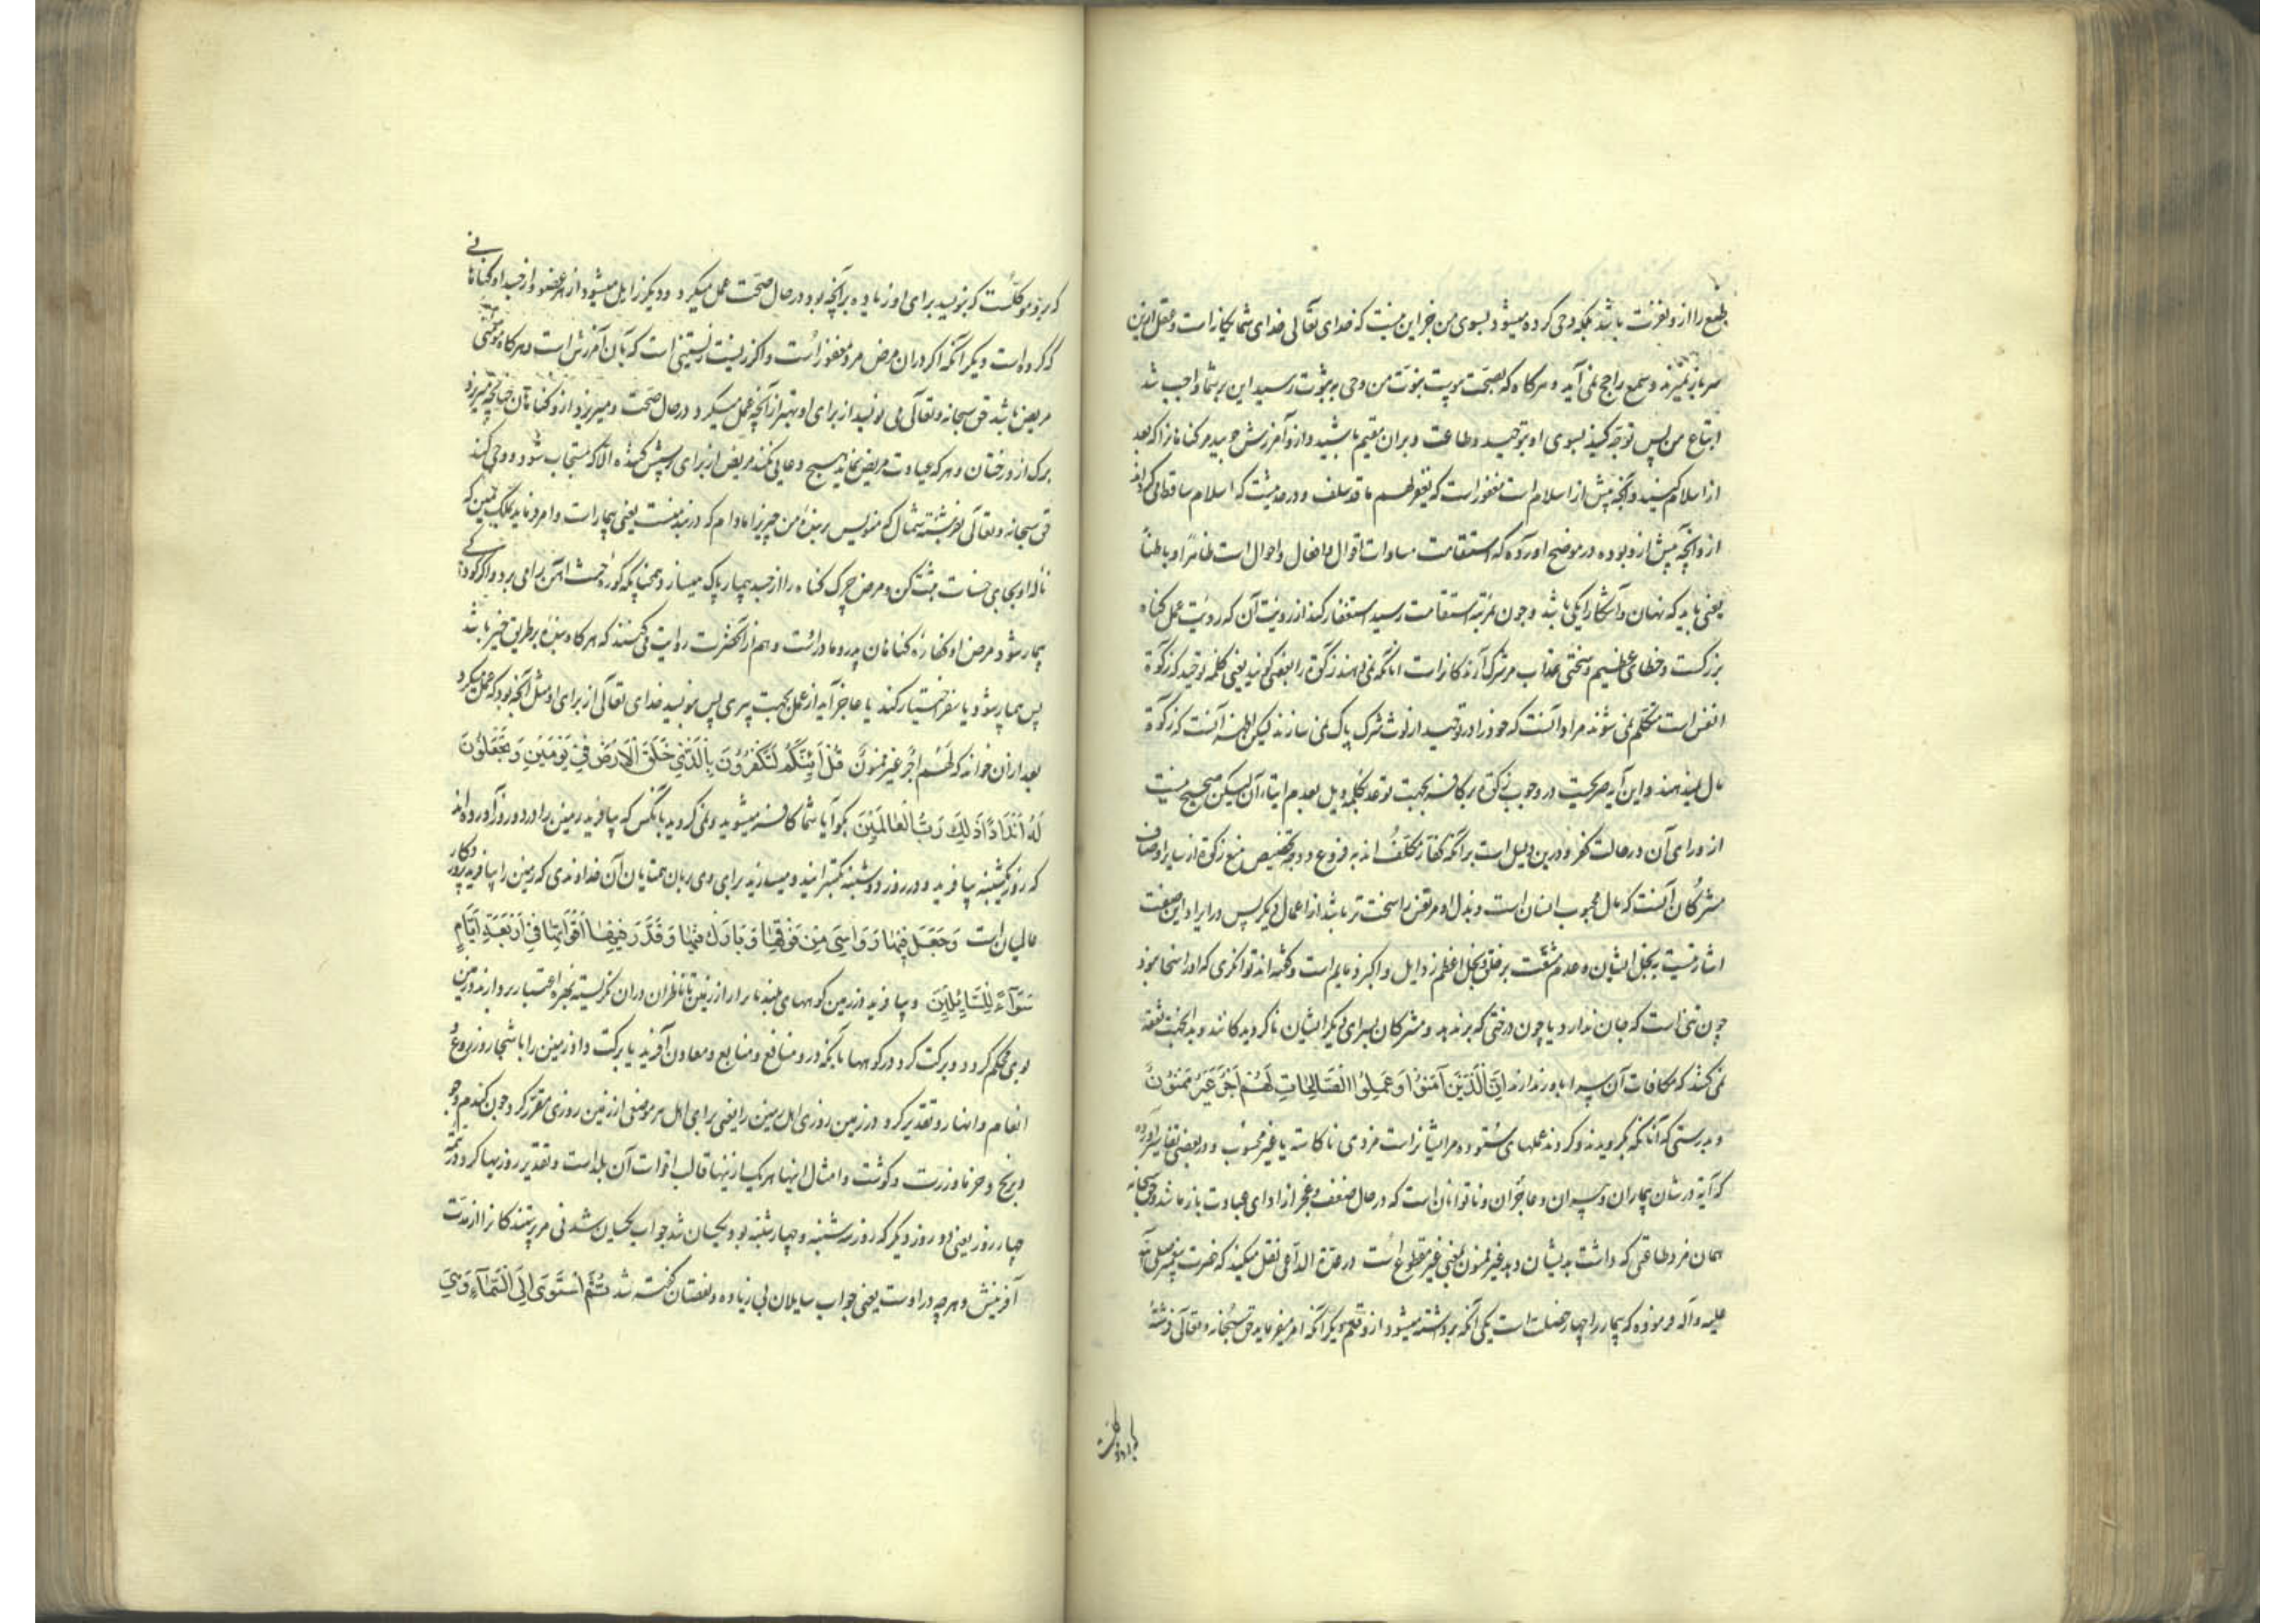 طبع را ازو نفرت باشد بلکه وحی کرده میشود بسوی من جز این نیست که خدای تعالی خدای شما یکانه است و عقل ازین
سر باز نمیزند و سمع راجح نمی آید و هرکاه که بصحت پیوست نبوت من و وحی به ثبوت رسید این بر شما واجب شد
اتباع من پس توجه کنید بسوی او بتوحید و طاعت و بران مقیم باشید و ازو آمرزش جویید مر کناهانرا که بعد
از اسلام کنید و آنچه پیش از اسلام است مغفور است که یغفر لهم ما قد سلف و در حدیثست که اسلام ساقط می کرداند
از و آنچه پیش ازو بوده در موضح آورده که استقامت مساوات اقوال و افعال و احوال است ظاهرا و باطنا
یعنی باید که نهان و آشکارا یکی باشد و چون بمرتبه استقامت رسید استغفار کند از رویت آن که رویت عمل کناه
بزرکست و خطای عظیم و سختی عذاب مر شرک آرندکانراست آنانکه نمی دهند زکوة را بعضی کویند یعنی کلمه توحید که زکوة
انفس است متکلم نمی شوند مراد آنست که خود را در توحید از لوث شرک پاک نمی سازند لیکن اظهر آنست که زکوة
مال نمیدهند و این آیه صریحست در وجوب زکوة بر کافر بجهت توعد بکلمه ویل بعدم ایتاء آن لیکن صحیح نیست
از و رای آن در حالت کفر و درین دلیل است بر آنکه کفار مکلف اند به فروع و وجه تخصیص منع زکوة از سایر اوصاف
مشرکان آنست که مال محبوب انسان است و بذل او مر نفس را سخت تر باشد از اعمال دیکر پس در ایراد این صفت
اشارتیست به بخل ایشان و عدم شفقت بر خلق و بخل اعظم رذایل و اکبر ذمایم است و کفته اند توانکری که او را سخا نبود
چون تنی است که جان ندارد یا چون درختی که بر ندهد و مشرکان بسرای دیکر ایشان ناکرویدکانند و بدین جهت نفقه
نمی کنند که مکافات آن سرا باور ندارند اِنَّ الَّذینَ آمَنُوا وَ عَمِلُوا الصّالِحاتِ لَهُم اَجرٌ غَیرُ مَمنُونٍ
و بدرستی که آنانکه بکرویدند و کردند عملهای ستوده مر ایشانراست مزدی ناکاسته یا غیر محسوب و در بعضی تفاسیر آورده
که آیه در شان بیماران و پیران و عاجزان و ناتوانان است که در حال ضعف و عجز از ادای عبادت باز ماند حق سبحانه
همان مزد طاعتی که داشت بدیشان دهد غیر ممنون یعنی غیر مقطوع است در عدة الداعی نقل میکنند که حضرت پیغمبر صلی الله
علیه و آله فرموده که بیمار را چهار خصلت است یکی آنکه برداشته میشود ازو قلم دیکر آنکه امر میفرماید حق سبحانه و تعالی فرشته
که بدو موکلست
که بدو موکلست که بنویسد برای او زیاده بر آنچه بود در حال صحت عمل میکرد و دیکر زایل میشود از هر عضو از جسد او کناهانی
که کرده است دیکر آنکه اکر دران مرض مرد مغفور است و اکر زیست زیستنی است که بآن آمرزش است و هرکاه مومنی
مریض باشد حق سبحانه و تعالی می نویسد از برای او بهتر از آنچه عمل میکرد در حال صحت و میریزد ازو کناهان چنانچه میریزد
برک از درختان و هر که عیادت مریض نماید هیچ دعایی نکند مریض از برای پرسش کننده الا که مستجاب شود و وحی کند
حق سبحانه و تعالی بفرشته شمال که منویس بر بنده من چیزی را مادام که در بند منست یعنی بیمار است و امر نماید بملک یمین که
ناله او بجای حسنات ثبت کن و مرض چرک کناه را از جسد بیمار پاک میسازد همچنانکه کوره خبث آهن را می برد و اکر کودکی
بیمار شود مرض او کفاره کناهان پدر و مادر است و هم از آنحضرت روایت میکنند که هرکاه بنده بر طریق خیر باشد
پس بیمار شود یا سفر اختیار کند یا عاجز آید از عمل بجهت پیری پس بنویسد خدای تعالی از برای او مثل آنچه بود که عمل میکرد
بعد ازان خواند که لَهُم اَجرٌ غَیرُ مَمنُونٍ قُل اَئِنَّکُم لَتَکفُرُونَ بِالَّذی خَلَقَ الاَرضَ فی یَومَینِ وَ تَجعَلُونَ
لَهُ اَندَاداً ذلِکَ رَبُّ العَالَمینَ بکو آیا شما کافر میشوید و نمی کروید بآنکس که بیافرید زمین را در دو روز آورده اند
که روز یکشنبه بیافرید و در روز دوشنبه بکسترانید و میسازید برای وی همتایان آن خداوندی که زمین را بیافرید پروردکار
عالمیان است وَ جَعَلَ فیها رَواسِیَ مِن فَوقِها وَ بارَکَ فیها وَ قَدَّرَ فیها اَقواتَها فی اَربَعَةِ اَیّامٍ
سَواءً لِلسّائِلینَ و بیافرید در زمین کوههای بلند بار از زبر زمین تا ناظران دران نکریسته بهره اعتبار بردارند و زمین
بوی محکم کردد و برکت کرد در کوهها بآنکه درو منافع و منابع و معادن آفرید یا برکت داد زمین را باشجار و زروع
انعام و انهار و تقدیر کرد در زمین روزی اهل زمین را یعنی برای اهل هر موضعی از زمین روزی مقرر کرد چون کندم و جو
و برنج و خرما و ذرت و کوشت و امثال اینها هر یک ازینها قالب اقوات آن بلد است و تقدیر روزیها کرد در تتمه
چهار روز یعنی دو روز دیکر که روز سه شنبه و چهارشنبه بود یکسان شد جواب یکسان شدنی مر پرسندکانرا از مدت
آفرینش و هر چه در اوست یعنی جواب سایلان بی زیاده و نقصان کفته شد ثُمَّ استَوی اِلَی السَّماءِ وَ هِیَ